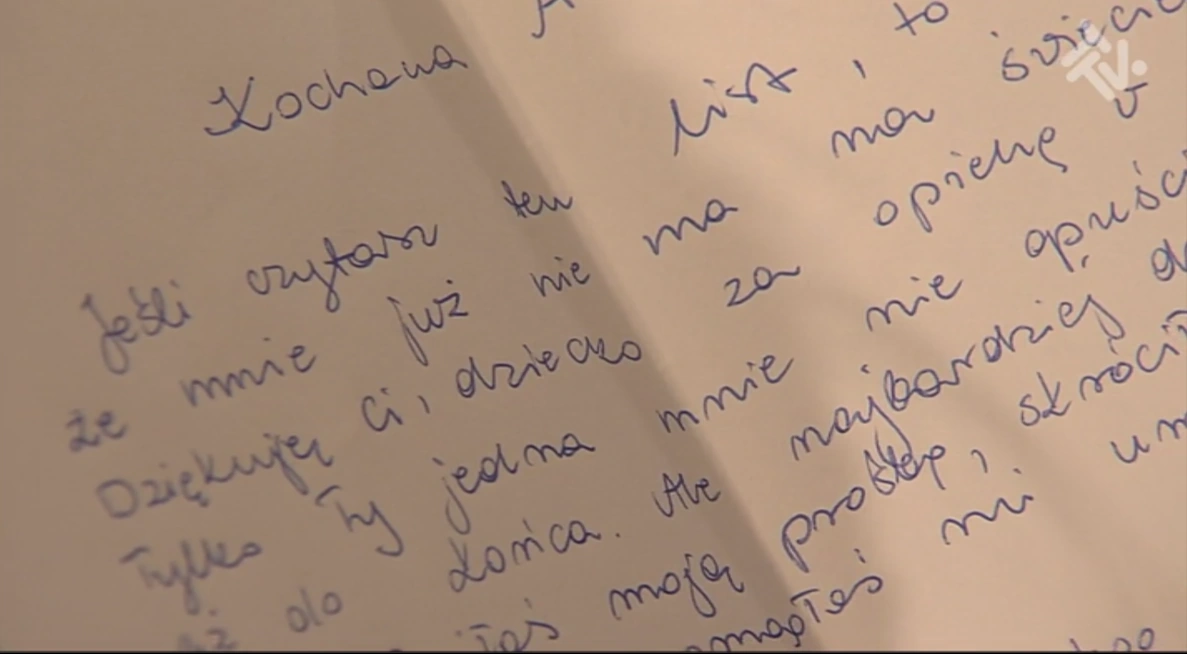 Kochana
Jeśli czytasz ten list, to
że mnie już nie ma na świecie
Dziękuję ci, dziecko za opiekę
Tylko Ty jedna mnie nie opuści
aż do końca. Ale najbardziej
łaś moją prośbę, skróci
mi um
TV.